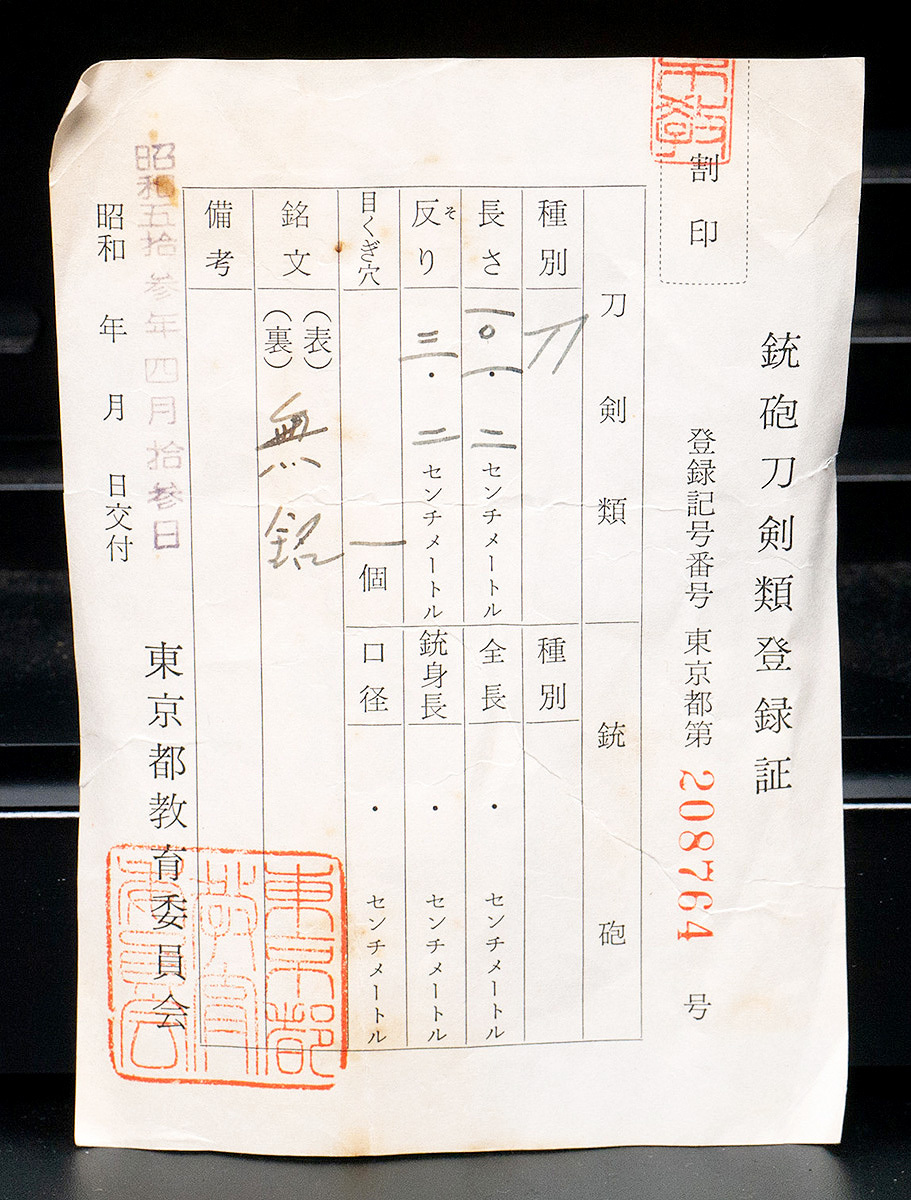 割印
銃砲刀剣類登録証
登録記号番号 東京都第 208764 号
刀剣類
銃砲
種別 刀
種別
長さ 一〇一・二センチメートル
全長 ・ センチメートル
反り そ 三・二センチメートル
銃身長 ・ センチメートル
目くぎ穴 一個
口径 ・ センチメートル
銘文 (表)
(裏) 無銘
備考
昭和五拾参年四月拾参日
昭和 年 月 日交付
東京都教育委員会
東京都
教育
委員会